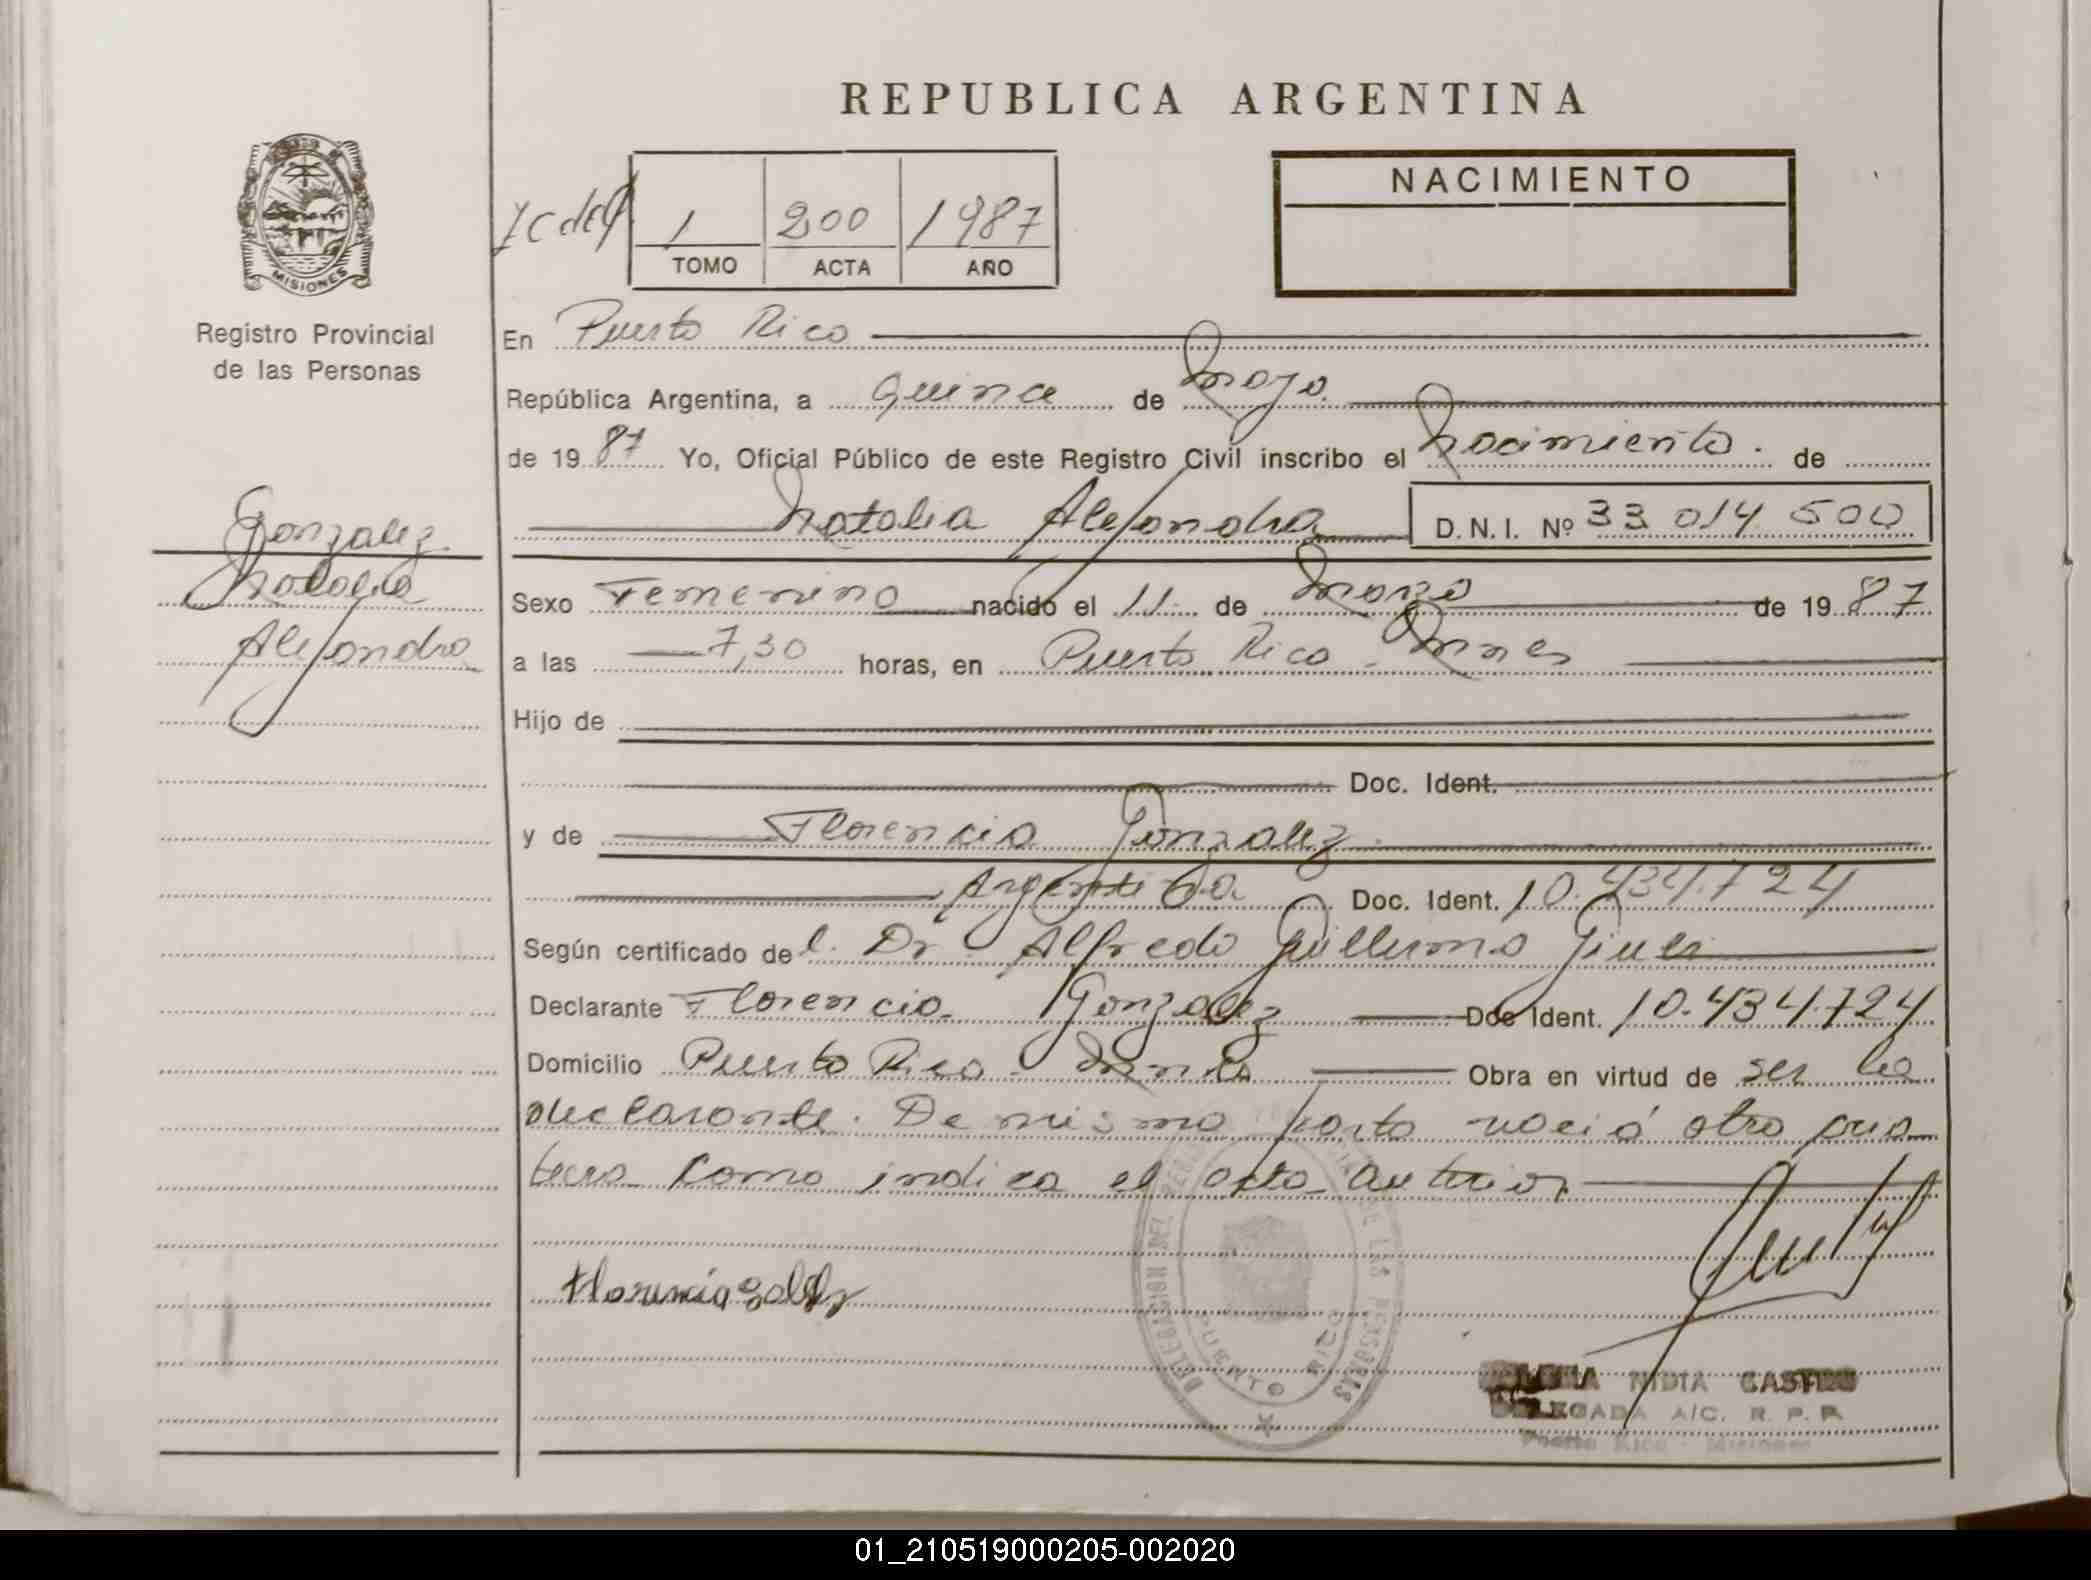 REPUBLICA ARGENTINA
MISIONES
Registro Provincial
de las Personas
1 200 1987
TOMO ACTA AÑO
NACIMIENTO
En Puerto Rico
República Argentina, a quince de mayo
de 1987 Yo, Oficial Público de este Registro Civil inscribo el nacimiento. de
Natalia Alejandra D.N.I. Nº 33 014 500
Gonzalez
Natalia
Alejandra
Sexo Femenino nacido el 11 de marzo de 1987
a las 7,30 horas, en Puerto Rico - Mnes
Hijo de
Doc. Ident.
y de Florencia Gonzalez
Argentina Doc. Ident. 10.434.724
Según certificado del. Dr. Alfredo Guillermo
Declarante Florencia Gonzalez Doc Ident. 10.434.724
Domicilio Puerto Rico - Mnes Obra en virtud de ser la
declarante. De mismo parto nació otra cria
tura como indica el acta anterior
Florencia
DELEGACION DEL REGISTRO PROVINCIAL DE LAS PERSONAS
PUERTO RICO
NIDIA CASTRO
DELEGADA A/C. R. P. P.
Puerto Rico - Misiones
01_210519000205-002020